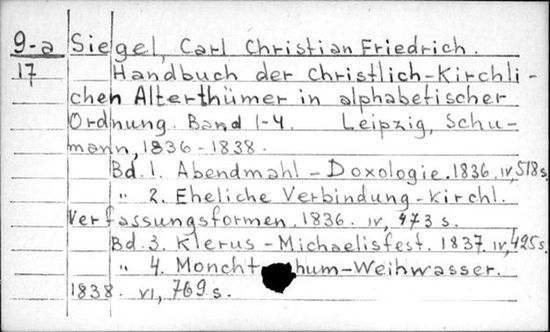 9-a Siegel, Carl Christian Friedrich.
17 Handbuch der Christlich-Kirchli-
chen Alterthümer in alphabetischer
Ordnung. Band 1-4. Leipzig, Schu-
mann, 1836-1838.
Bd. 1. Abendmahl - Doxologie. 1836. IV, 518 s.
" 2. Eheliche Verbindung - Kirchl.
Verfassungsformen. 1836. IV, 973 s.
Bd. 3. Klerus - Michaelisfest. 1837. IV, 425 s.
" 4. Moncht hum-Weihwasser.
1838. VI, 769 s.